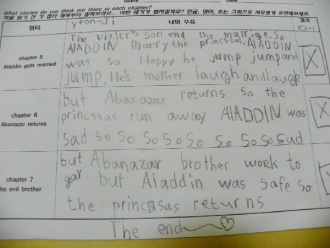 What stories do you think are there in each chapter?
yeon-Ji
챕터
나의 추측
결과
chapter 5
Aladdin gets married
The vizier's son end the marrige. So
ALADDIN marry the princess. ALADDIN
was so Happy he jump jumpand
jump. He's mother laugh and laugh
chapter 6
Abanazar returns
but Abanazar returns so the
princsas run away AlADDIN was
sad so so so so so so sad
chapter 7
the evil brother
but Abanazar brother work to
but Aladdin was safe so
the princesas returns
The end